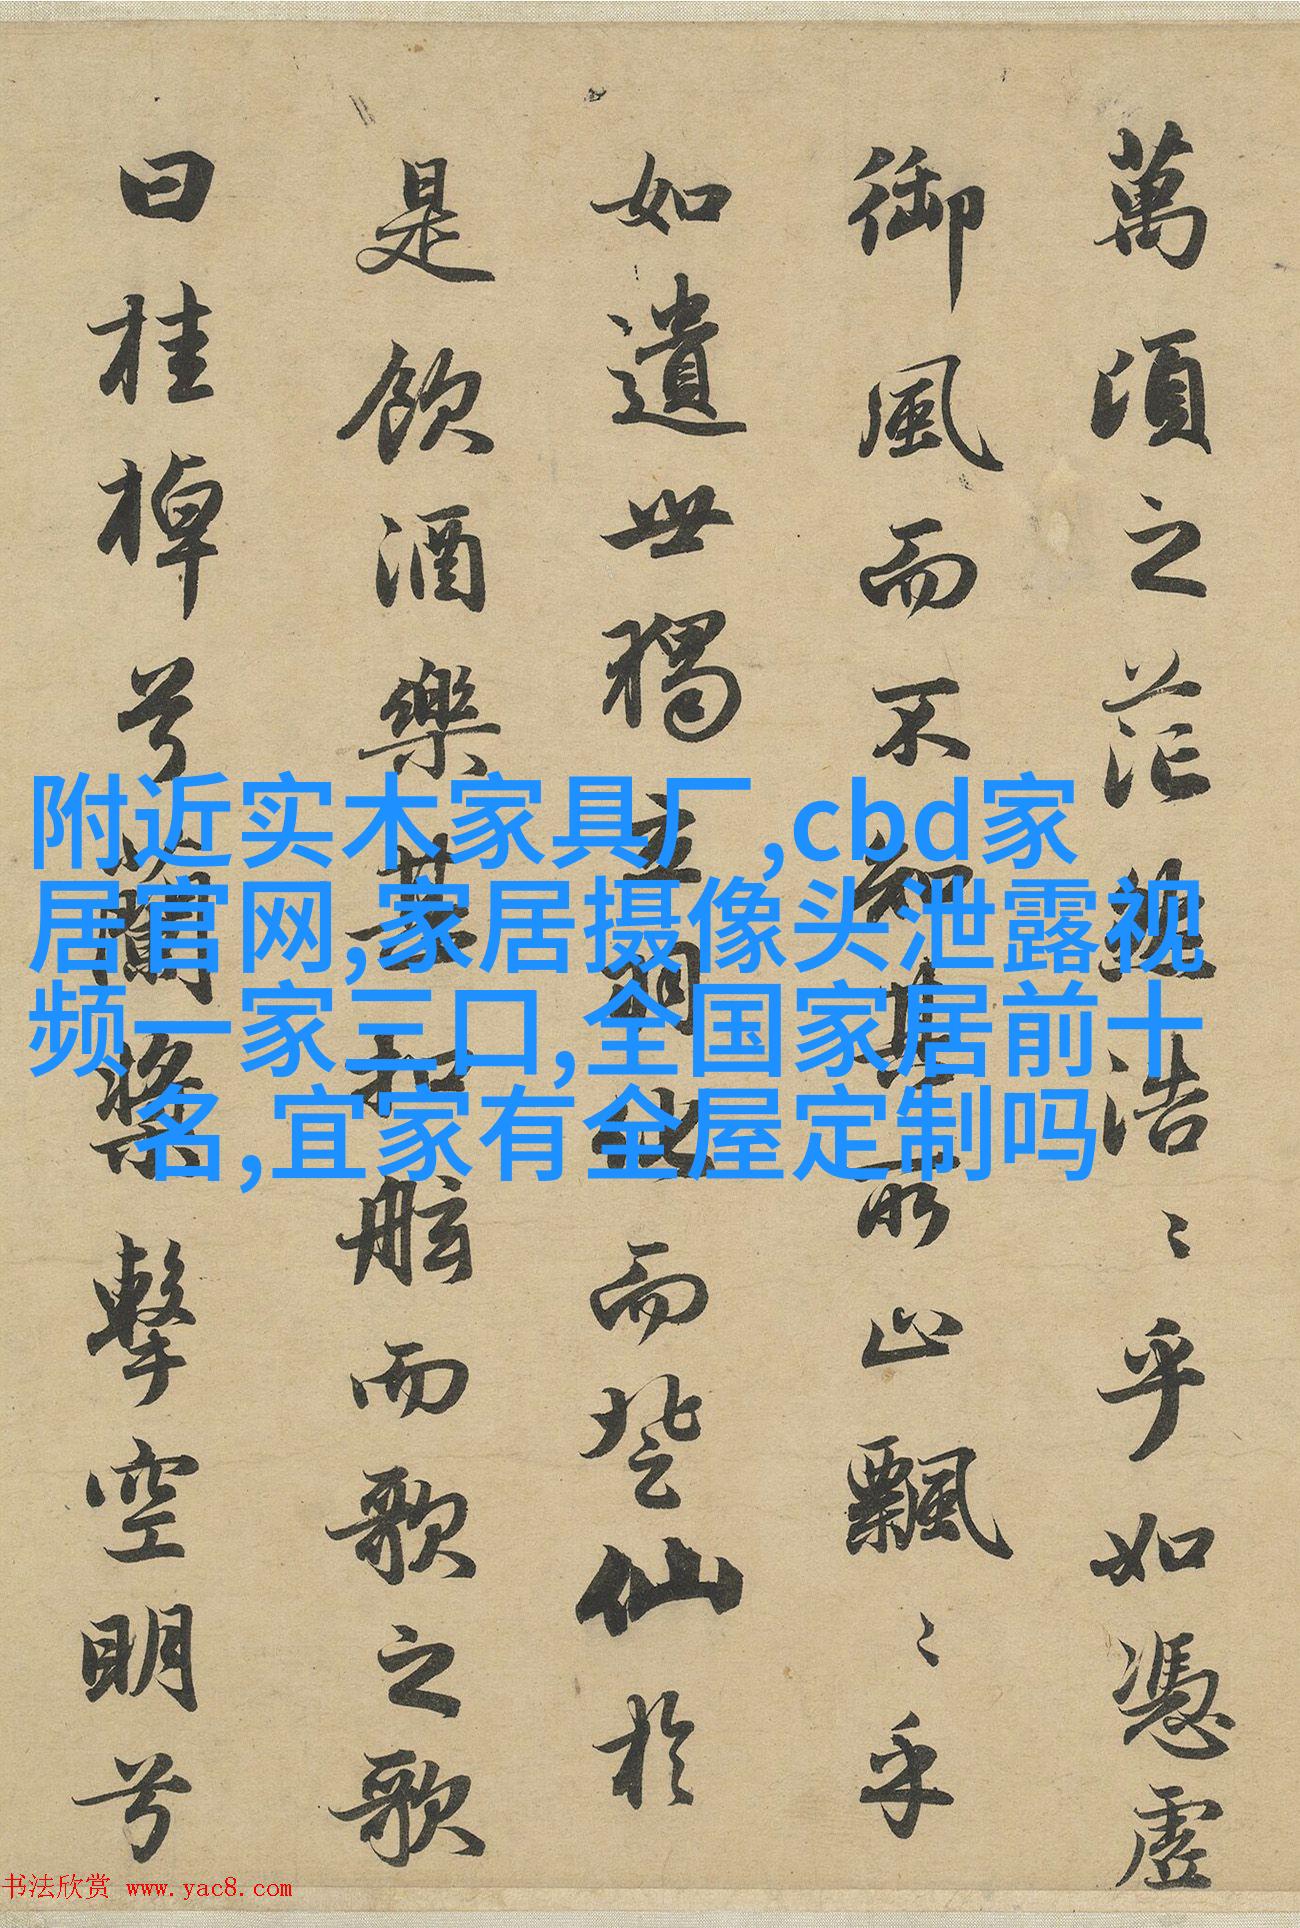 萬頃之茫然浩〻乎如憑虛
御風而不知其所止飄〻乎
如遺世獨立羽化而登仙於
是飲酒樂甚扣舷而歌之歌
曰桂棹兮蘭槳擊空明兮
附近实木家具厂,cbd家
居官网,家居摄像头泄露视
频一家三口,全国家居前十
名,宜家有全屋定制吗
书法欣赏 www.yac8.com